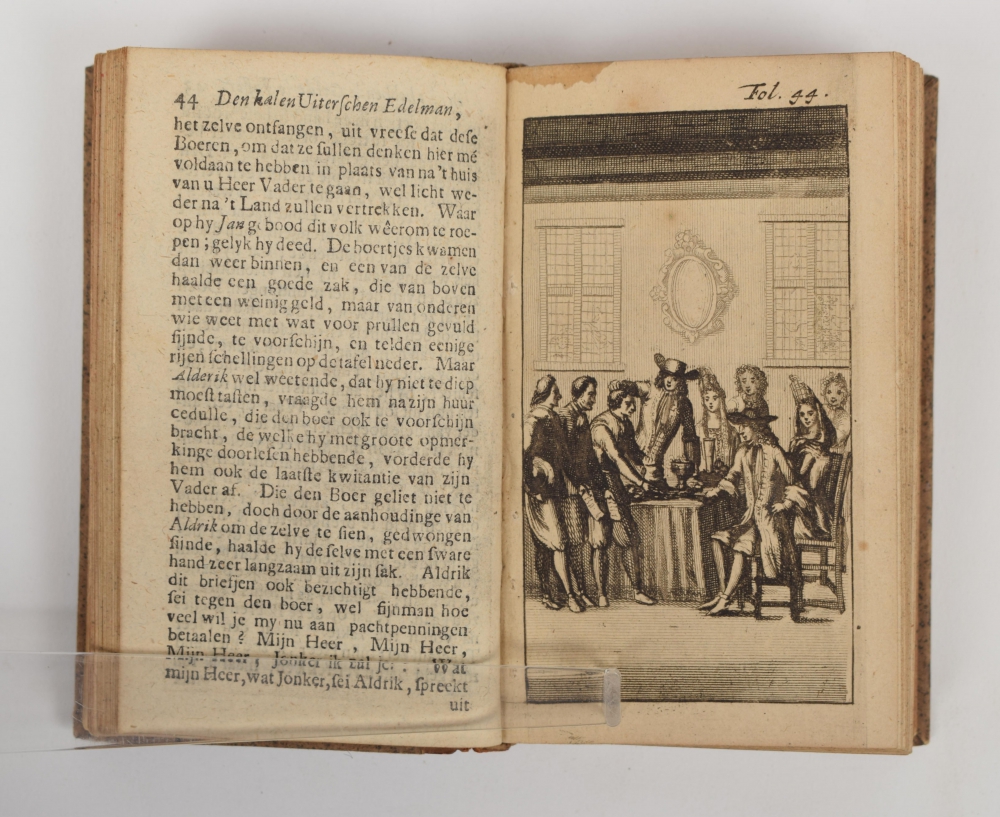 44 Den kalen Uiterſchen Edelman,
het zelve ontfangen, uit vreeſe dat deſe
Boeren, om dat ze ſullen denken hier mé
voldaan te hebben in plaats van na 't huis
van u Heer Vader te gaan, wel licht we-
der na 't Land zullen vertrekken. Waar
op hy Jan gebood dit volk wêerom te roe-
pen; gelyk hy deed. De boertjes kwamen
dan weer binnen, en een van de zelve
haalde een goede zak, die van boven
met een weinig geld, maar van onderen
wie weet met wat voor prullen gevuld
ſijnde, te voorſchijn, en telden eenige
rijen ſchellingen op de tafel neder. Maar
Alderik wel weetende, dat hy niet te diep
moeſt taſten, vraagde hem na zijn huur
cedulle, die den boer ook te voorſchijn
bracht, de welke hy met groote opmer-
kinge doorleſen hebbende, vorderde hy
hem ook de laatſte kwitantie van zijn
Vader af. Die den Boer geliet niet te
hebben, doch door de aanhoudinge van
Aldrik om de zelve te ſien, gedwongen
ſijnde, haalde hy de ſelve met een ſware
hand zeer langzaam uit zijn ſak. Aldrik
dit briefjen ook bezichtigt hebbende,
ſei tegen den boer, wel fijnman hoe
veel wil je my nu aan pachtpenningen
betaalen? Mijn Heer, Mijn Heer,
Mijn Heer, Jonker ik zal je. . . Wat
mijn Heer, wat Jonker, ſei Aldrik, ſpreekt
uit
Fol. 44.